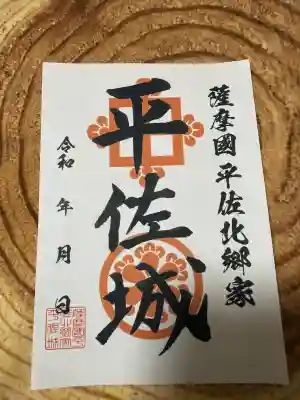 薩摩國平佐北郷家
平佐城
令和　年　月　日